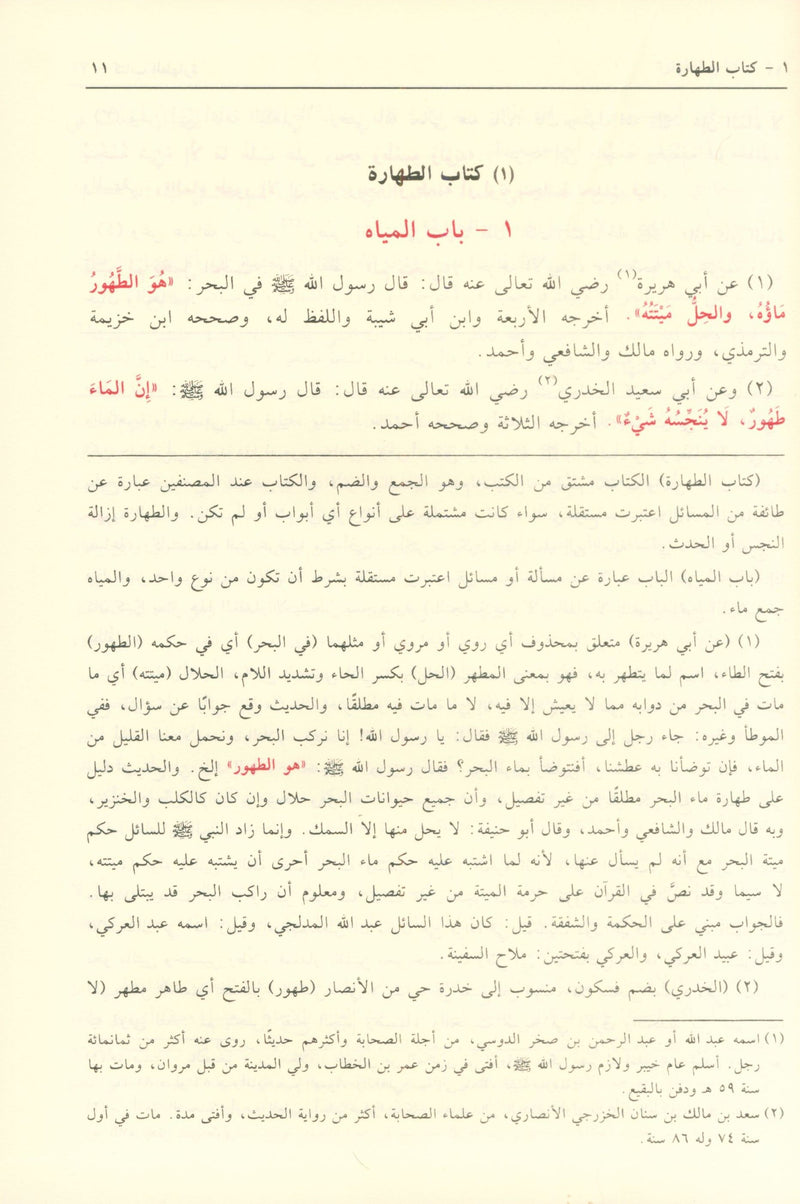 ١ - كتاب الطهارة ١١
(١) كتاب الطهارة
١ - باب المياه
(١) عن أبي هريرة(١) رضي الله تعالى عنه قال: قال رسول الله ﷺ في البحر: «هُوَ الطَّهُورُ
مَاؤُهُ، والحِلُّ مَيْتَتُهُ». أخرجه الأربعة وابن أبي شيبة واللفظ له، وصححه ابن خزيمة
والترمذي، ورواه مالك والشافعي وأحمد.
(٢) وعن أبي سعيد الخدري(٢) رضي الله تعالى عنه قال: قال رسول الله ﷺ: «إِنَّ المَاءَ
طَهُورٌ، لَا يُنَجِّسُهُ شَيْءٌ». أخرجه الثلاثة وصححه أحمد.
(كتاب الطهارة) الكتاب مشتق من الكتب، وهو الجمع والضم، والكتاب عند المصنفين عبارة عن
طائفة من المسائل اعتبرت مستقلة، سواء كانت مشتملة على أنواع أي أبواب أو لم تكن. والطهارة إزالة
النجس أو الحدث.
(باب المياه) الباب عبارة عن مسألة أو مسائل اعتبرت مستقلة بشرط أن تكون من نوع واحد، والمياه
جمع ماء.
(١) (عن أبي هريرة) متعلق بمحذوف أي روي أو مروي أو مثلهما (في البحر) أي في حكمه (الطهور)
بفتح الطاء، اسم لما يتطهر به، فهو بمعنى المطهر (الحل) بكسر الحاء وتشديد اللام، الحلال (ميتته) أي ما
مات في البحر من دوابه مما لا يعيش إلا فيه، لا ما مات فيه مطلقًا، والحديث وقع جوابًا عن سؤال، ففي
الموطأ وغيره: جاء رجل إلى رسول الله ﷺ فقال: يا رسول الله! إنا نركب البحر، ونحمل معنا القليل من
الماء، فإن توضأنا به عطشنا، أفنتوضأ بماء البحر؟ فقال رسول الله ﷺ: «هو الطهور» إلخ. والحديث دليل
على طهارة ماء البحر مطلقًا من غير تفصيل، وأن جميع حيوانات البحر حلال وإن كان كالكلب والخنزير،
وبه قال مالك والشافعي وأحمد، وقال أبو حنيفة: لا يحل منها إلاَّ السمك. وإنما زاد النبي ﷺ للسائل حكم
ميتة البحر مع أنه لم يسأل عنها، لأنه لما اشتبه عليه حكم ماء البحر أحرى أن يشتبه عليه حكم ميتته،
لا سيما وقد نصَّ في القرآن على حرمة الميتة من غير تفصيل، ومعلوم أن راكب البحر قد يبتلى بها.
فالجواب مبني على الحكمة والشفقة. قيل: كان هذا السائل عبد الله المدلجي، وقيل: اسمه عبد العركي،
وقيل: عبيد العركي، والعركي بفتحتين: ملاح السفينة.
(٢) (الخدري) بضم فسكون، منسوب إلى خدرة حي من الأنصار (طهور) بالفتح أي طاهر مطهر (لا
(١) اسمه عبد الله أو عبد الرحمن بن صخر الدوسي، من أجلة الصحابة وأكثرهم حديثًا، روى عنه أكثر من ثمانمائة
رجل. أسلم عام خيبر ولازم رسول الله ﷺ، أفتى في زمن عمر بن الخطاب، ولي المدينة من قبل مروان، ومات بها
سنة ٥٩ هـ ودفن بالبقيع.
(٢) سعد بن مالك بن سنان الخزرجي الأنصاري، من علماء الصحابة، أكثر من رواية الحديث، وأفتى مدة. مات في أول
سنة ٧٤ وله ٨٦ سنة.